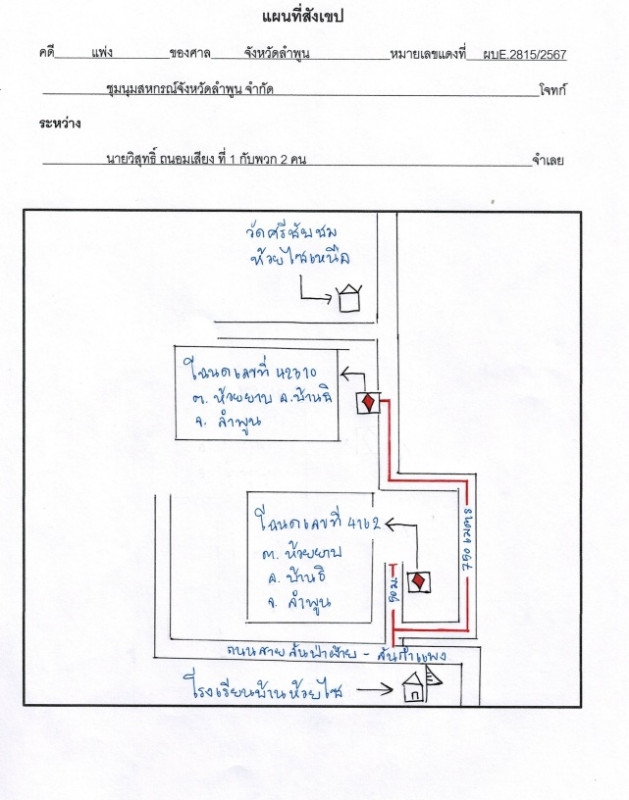 แผนที่สังเขป
คดี แพ่ง ของศาล จังหวัดลำพูน หมายเลขแดงที่ ผบE.2815/2567
ชุมนุมสหกรณ์จังหวัดลำพูน จำกัด โจทก์
ระหว่าง
นายวิสุทธิ์ ถนอมเสียง ที่ 1 กับพวก 2 คน จำเลย
วัดศรีสับชม
ห้วยไซเหนือ
โฉนดเลขที่ 42310
ต. ห้วยยาบ อ.บ้านธิ
จ. ลำพูน
โฉนดเลขที่ 4162
ต. ห้วยยาบ
อ. บ้านธิ
จ. ลำพูน
50 ม.
750 เมตร
ถนนสายสันป่าฝ้าย - สันกำแพง
โรงเรียนบ้านห้วยไซ